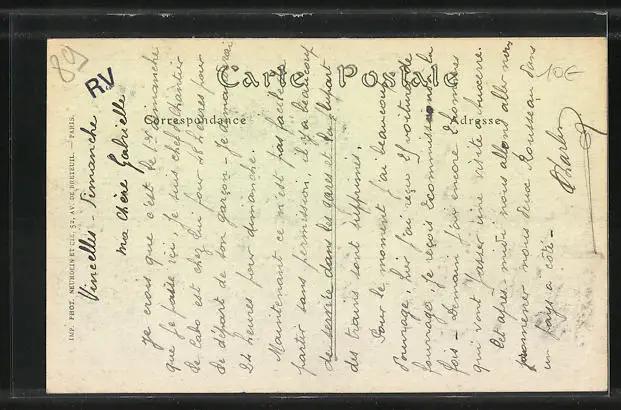 89
RV
10€
Carte Postale
Correspondance
Adresse
IMP. PHOT. NEURDEIN ET CIE, 52, AV. DE BRETEUIL. — PARIS.
Vincelles - Dimanche
Ma chère Gabrielle
Je crois que c'est le 1er dimanche
que je passe ici, je suis chef de chantier
le Cabo est chez lui pour 48 heures pour
le départ de son garçon - Je demanderai
24 heures pour dimanche.
Maintenant ce n'est pas facile de
partir sans permission, il y a beaucoup
de service dans les gares et la plupart
des trains sont supprimés.
Pour le moment j'ai beaucoup
d'ouvrage, hier j'ai reçu 25 voitures de
fourrage, je reçois écommission à la
fois - Demain j'ai encore 2 hommes
qui vont passer une visite à Auxerre.
Cet après midi nous allons aller nous
promener nous deux Rousseau dans
un pays à côté -
Charles